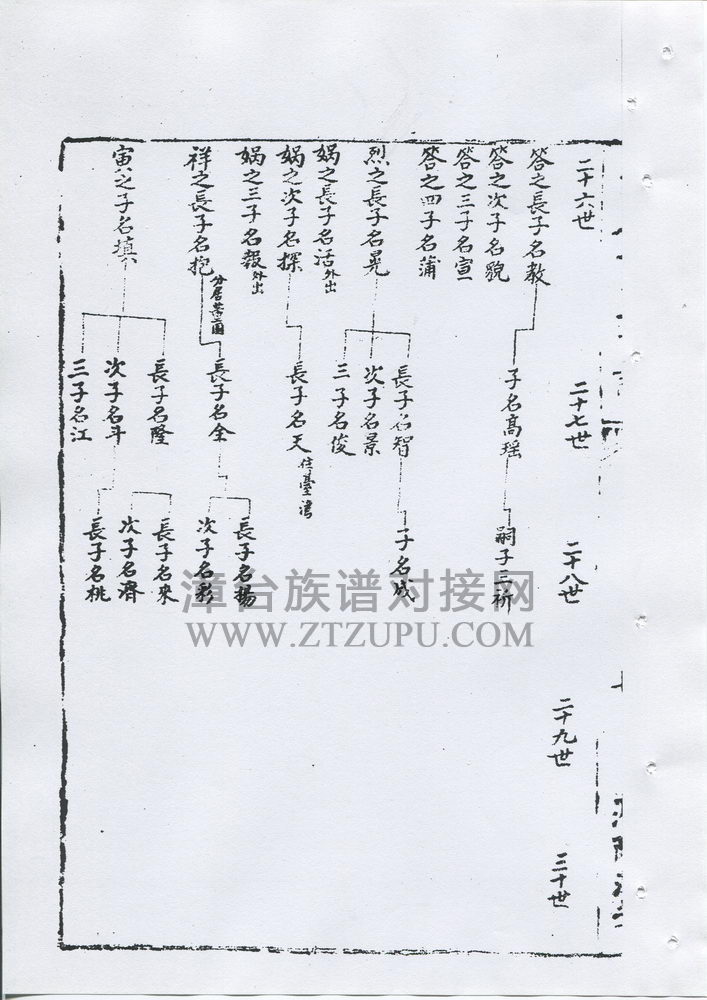 二十六世
答之長子名教
答之次子名貌
答之三子名宣
答之四子名蒲
烈之長子名晃
娲之長子名活外出
娲之次子名探
娲之三子名報外出
祥之長子名抱
分居
寅公之子名填
二十七世
子名高瑶
長子名智
次子名景
三子名俊
長子名天
住臺湾
長子名全
長子名隆
次子名斗
三子名江
二十八世
嗣子三祈
子名成
長子名揚
次子名彩
長子名來
次子名濟
長子名桃
二十九世
三十世
漳台族谱对接网
WWW.ZTZUPU.COM